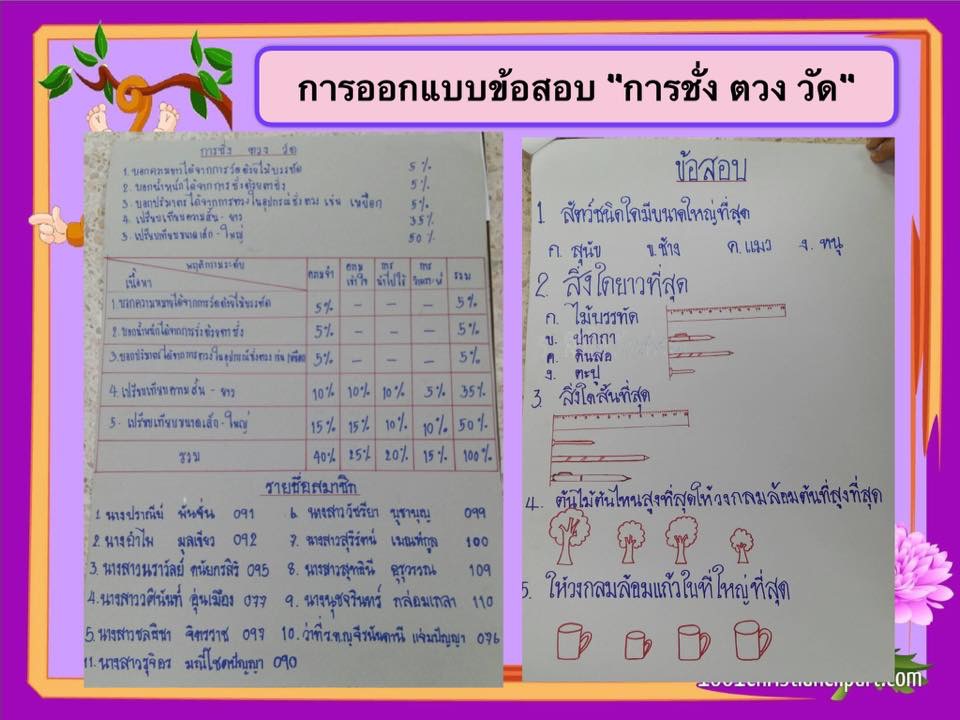 การออกแบบข้อสอบ "การชั่ง ตวง วัด"
การชั่ง ตวง วัด
1. บอกความยาวได้จากการวัดด้วยไม้บรรทัด 5%
2. บอกน้ำหนักได้จากการชั่งด้วยตาชั่ง 5%
3. บอกปริมาตรได้จากการตวงในอุปกรณ์ชั่งตวง เช่น เหยือก 5%
4. เปรียบเทียบความสั้น - ยาว 35%
5. เปรียบเทียบขนาดเล็ก - ใหญ่ 50%
พฤติกรรม/ระดับ
เนื้อหา
ความจำ ความเข้าใจ การนำไปใช้ การวิเคราะห์ รวม
1. บอกความหมายได้จากการวัดด้วยไม้บรรทัด 5% – – – 5%
2. บอกน้ำหนักได้จากการชั่งด้วยตาชั่ง 5% – – – 5%
3. บอกปริมาตรได้จากการตวงในอุปกรณ์ชั่งตวง เช่น เหยือก 5% – – – 5%
4. เปรียบเทียบความสั้น - ยาว 10% 10% 10% 5% 35%
5. เปรียบเทียบขนาดเล็ก - ใหญ่ 15% 15% 10% 10% 50%
รวม 40% 25% 20% 15% 100%
รายชื่อสมาชิก
1. นางปราณีย์ 091
6. นางสาววัชรียา บุชาบุญ 099
2. นางอำไพ มุลเขียว 092
7. นางสาวสุริรัตน์ 100
3. นางสาวนราวัลย์ 095
8. นางสาวสุทธินี 109
4. นางสาววศินันท์ อุ่นเมือง 077
9. นางนุชจรินทร์ กล่อมเกลา 110
5. นางสาวชลธิชา จิตรราช 097
10. ว่าที่ร.ต.ญ. แจ่มปัญญา 076
11. นางสาวรุจิอร มณีโชตปัญญา 090
ข้อสอบ
1. สัตว์ชนิดใดมีขนาดใหญ่ที่สุด
ก. สุนัข ข. ช้าง ค. แมว ง. หนู
2. สิ่งใดยาวที่สุด
ก. ไม้บรรทัด
ข. ปากกา
ค. ดินสอ
ง. ตะปู
3. สิ่งใดสั้นที่สุด
4. ต้นไม้ต้นไหนสูงที่สุดให้วงกลมล้อมต้นที่สูงที่สุด
5. ให้วงกลมล้อมแก้วใบที่ใหญ่ที่สุด
1001christianclipart.com